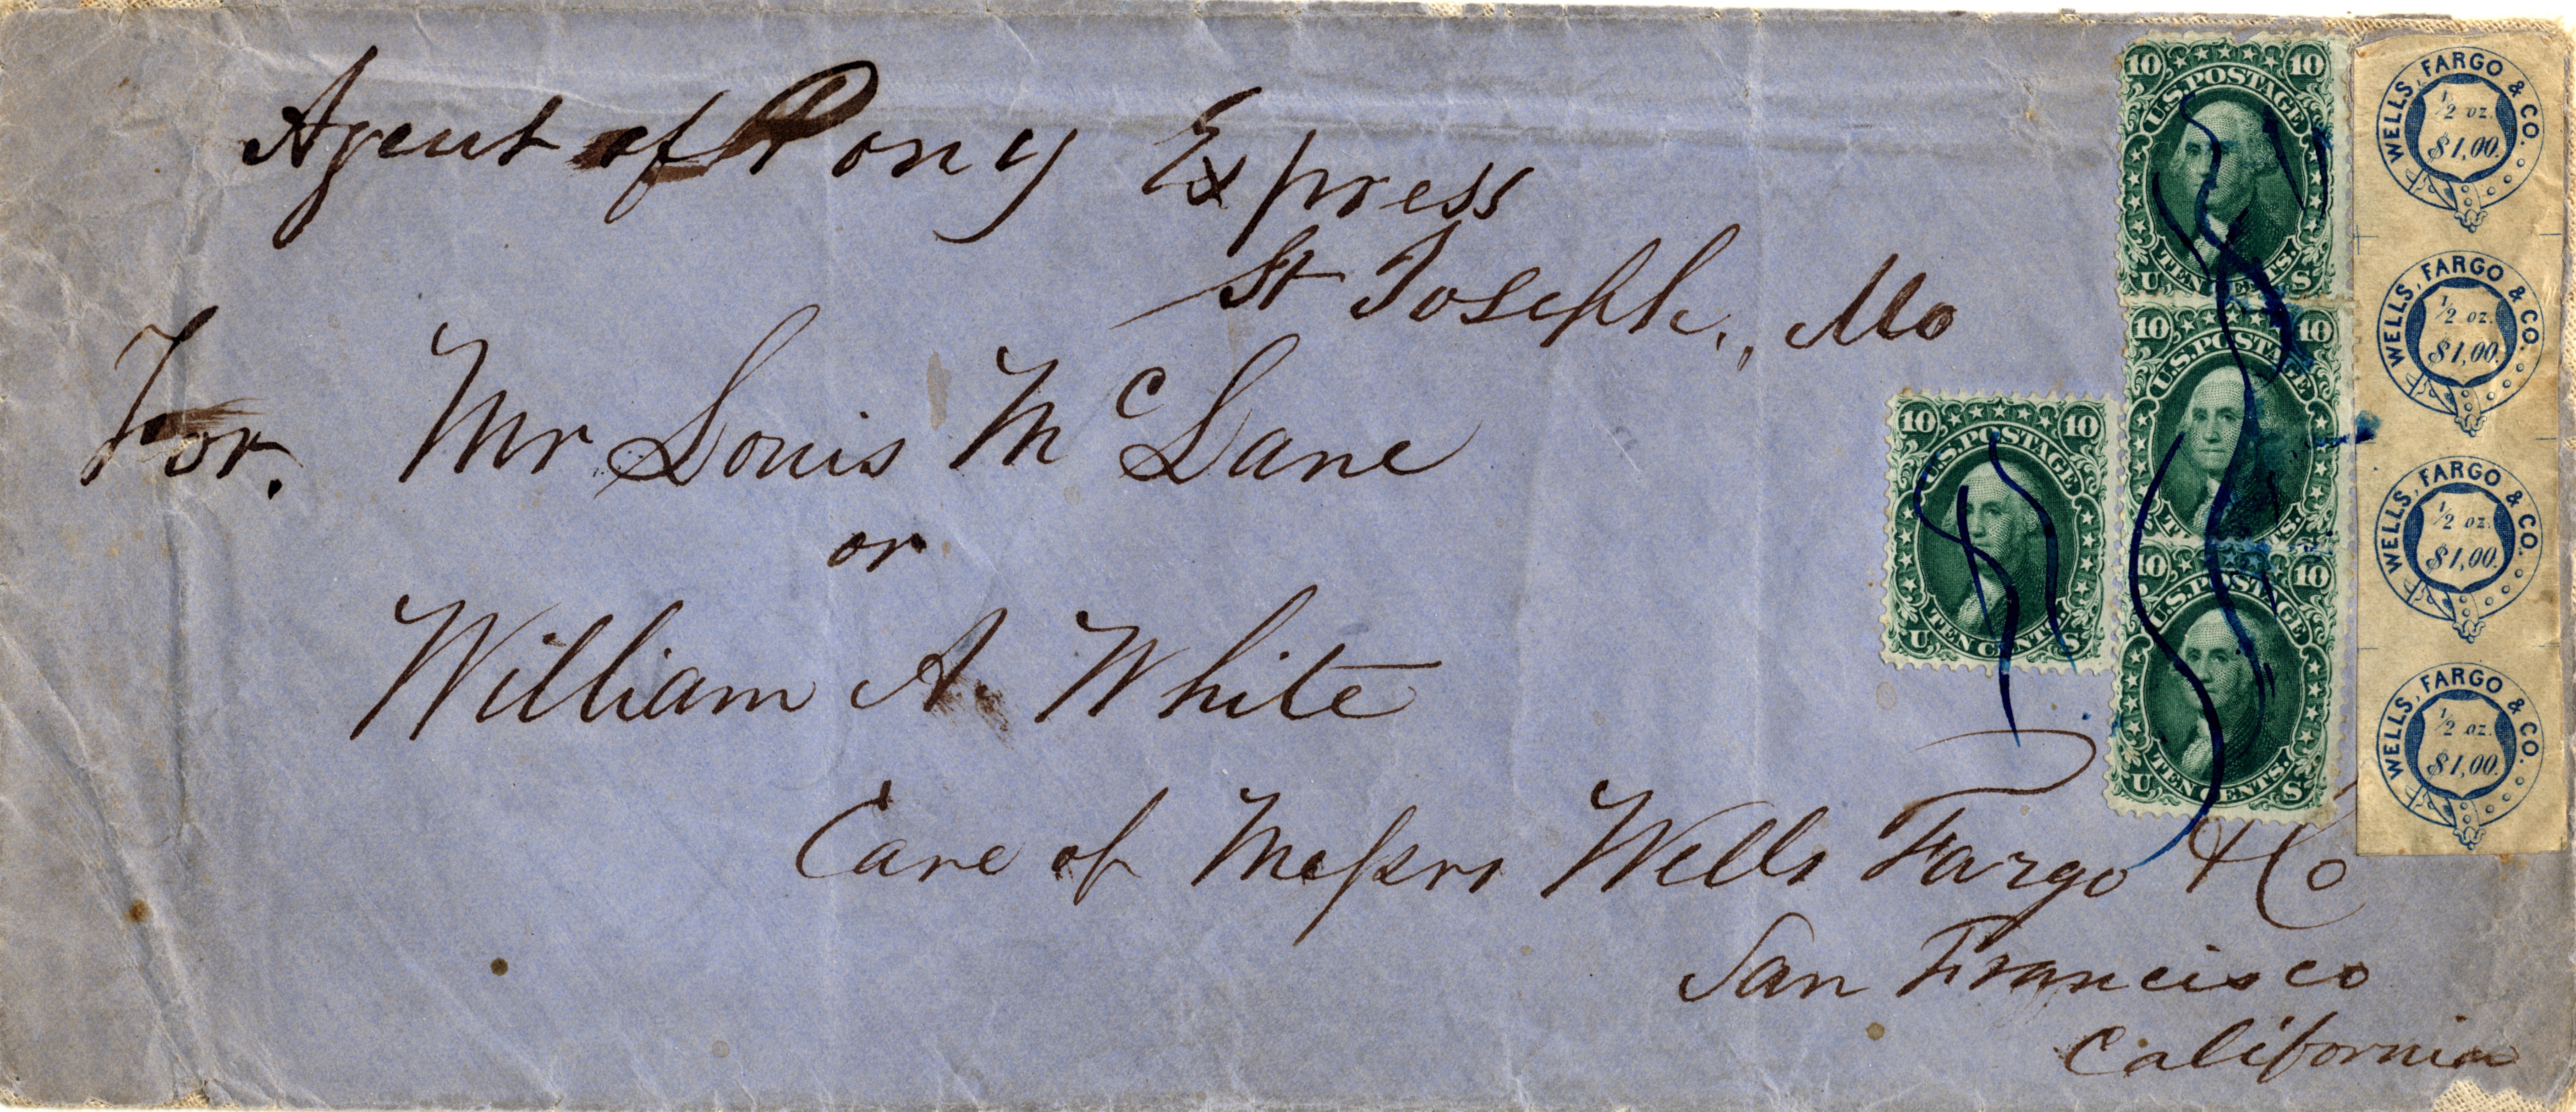 Agent of Pony Express
St Joseph, Mo
For. Mr Louis McLane
or
William A. White
Care of Messrs Wells Fargo & Co
San Francisco
California
10 10
U.S. POSTAGE
TEN CENTS.
U S
10 10
U.S. POSTAGE
TEN CENTS.
U S
10 10
U.S. POSTAGE
TEN CENTS.
10 10
U.S. POSTAGE
TEN CENTS.
U S
WELLS, FARGO & CO.
1/2 oz.
$1,00.
WELLS, FARGO & CO.
1/2 oz.
$1,00.
WELLS, FARGO & CO.
1/2 oz.
$1,00.
WELLS, FARGO & CO.
1/2 oz.
$1,00.